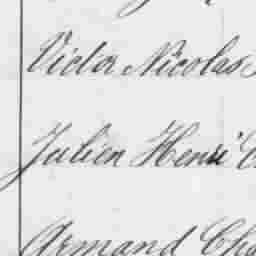 Victor Nicolas
Julien Henri
Armand Cha